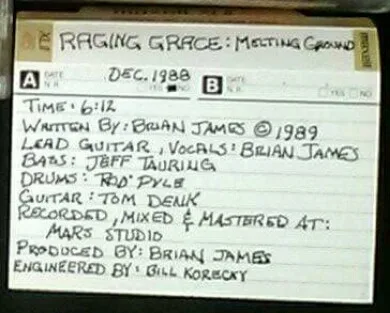 RAGING GRACE: MELTING GROUND
XLII
maxell
A DATE DEC. 1988 B DATE
N.R. YES NO N.R. YES NO
TIME: 6:12
WRITTEN BY: BRIAN JAMES © 1989
LEAD GUITAR, VOCALS: BRIAN JAMES
BASS: JEFF TAURING
DRUMS: ROD PYLE
GUITAR: TOM DENK
RECORDED, MIXED & MASTERED AT:
MARS STUDIO
PRODUCED BY: BRIAN JAMES
ENGINEERED BY: BILL KORECKY